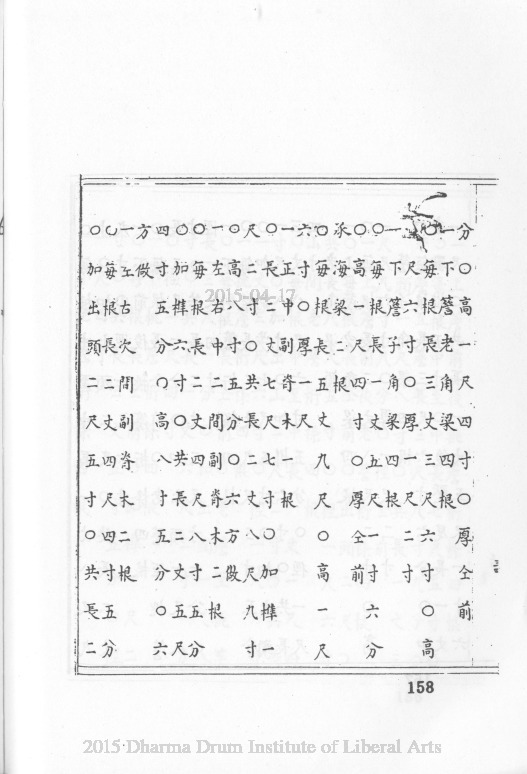 分○高一尺四寸○厚仝前
一下簷老角梁四根
○每根長三丈三尺六寸○高
尺六寸○厚一尺二寸
一下簷子角梁四根
○每根長一丈五尺一寸六分
○高一尺四寸○厚仝前
承海梁二根
○每根長五丈九尺○高一尺
六寸○厚一尺
一正中副脊木一根
○長二丈七尺七寸○加榫一
尺二寸○共長二丈八尺九寸
○高八寸五分○六方做
一左右中二間副脊木二根
○每根長二丈四尺八寸五分
○加榫六寸○共長二丈五尺
四寸五分○高八寸五分○六
方做
一左右次間副脊木二根
○每根長二丈四尺四寸五分
○加出頭二尺五寸○共長二
158
2015-04-17
2015 Dharma Drum Institute of Liberal Arts